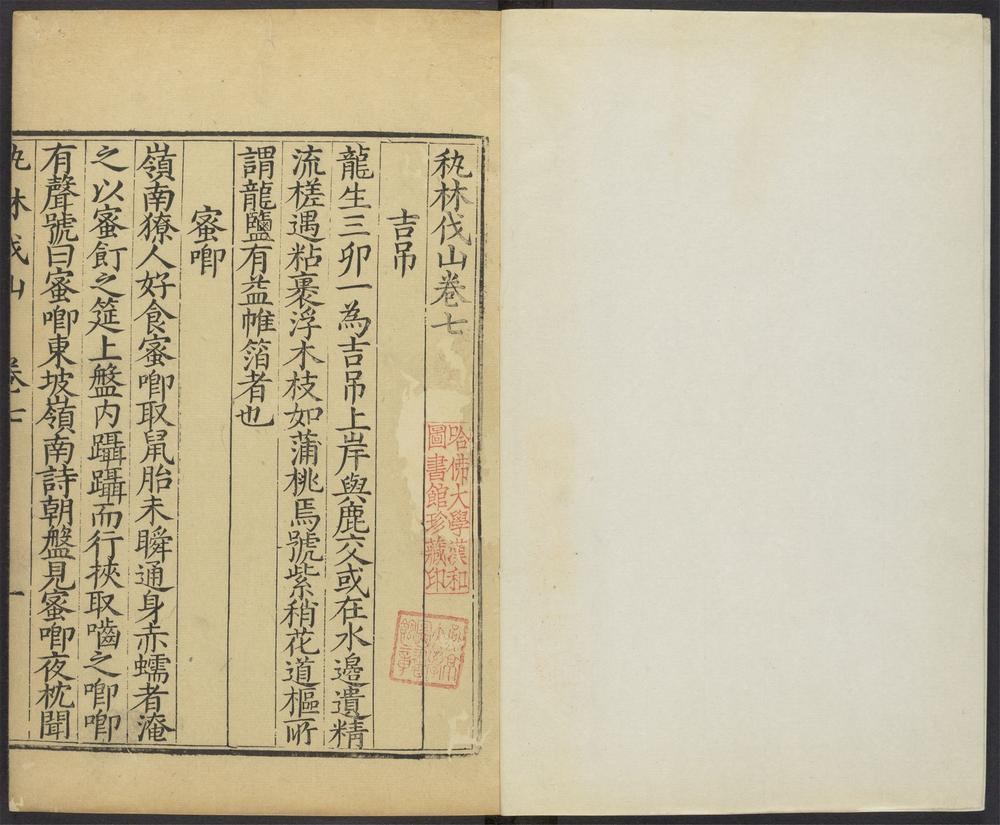 秇林伐山卷七
吉吊
龍生三卵一為吉吊上岸與鹿交或在水邊遺精
流槎遇粘裹浮木枝如蒲桃焉號紫稍花道樞所
謂龍鹽有益帷箔者也
蜜唧
嶺南獠人好食蜜唧取鼠胎未瞬通身赤蠕者淹
之以蜜飣之筵上盤內躡躡而行挾取嚙之唧唧
有聲號曰蜜唧東坡嶺南詩朝盤見蜜唧夜枕聞
秇林伐山 卷七 一
哈佛大學漢和
圖書館珍藏印